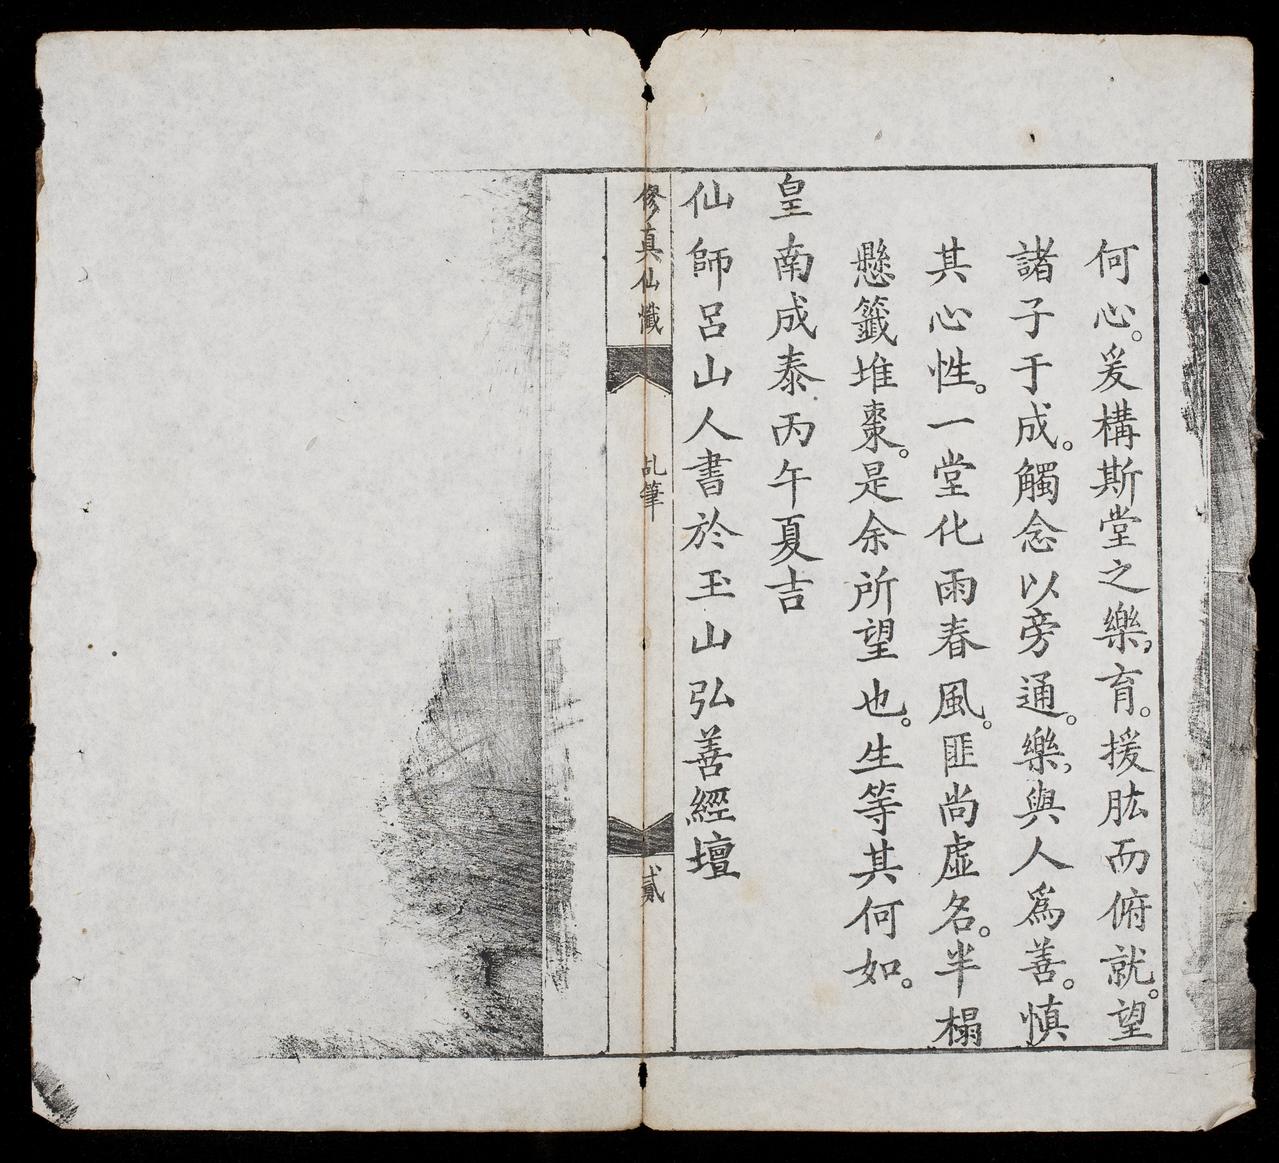 何心。爰構斯堂之樂育。援肱而俯就。望
諸子于成。觸念以旁通。樂與人爲善。慎
其心性。一堂化雨春風。匪尚虛名。半榻
懸籤堆棗。是余所望也。生等其何如。
皇南成泰丙午夏吉
仙師呂山人書於玉山弘善經壇
修真仙懺
乩筆
貳